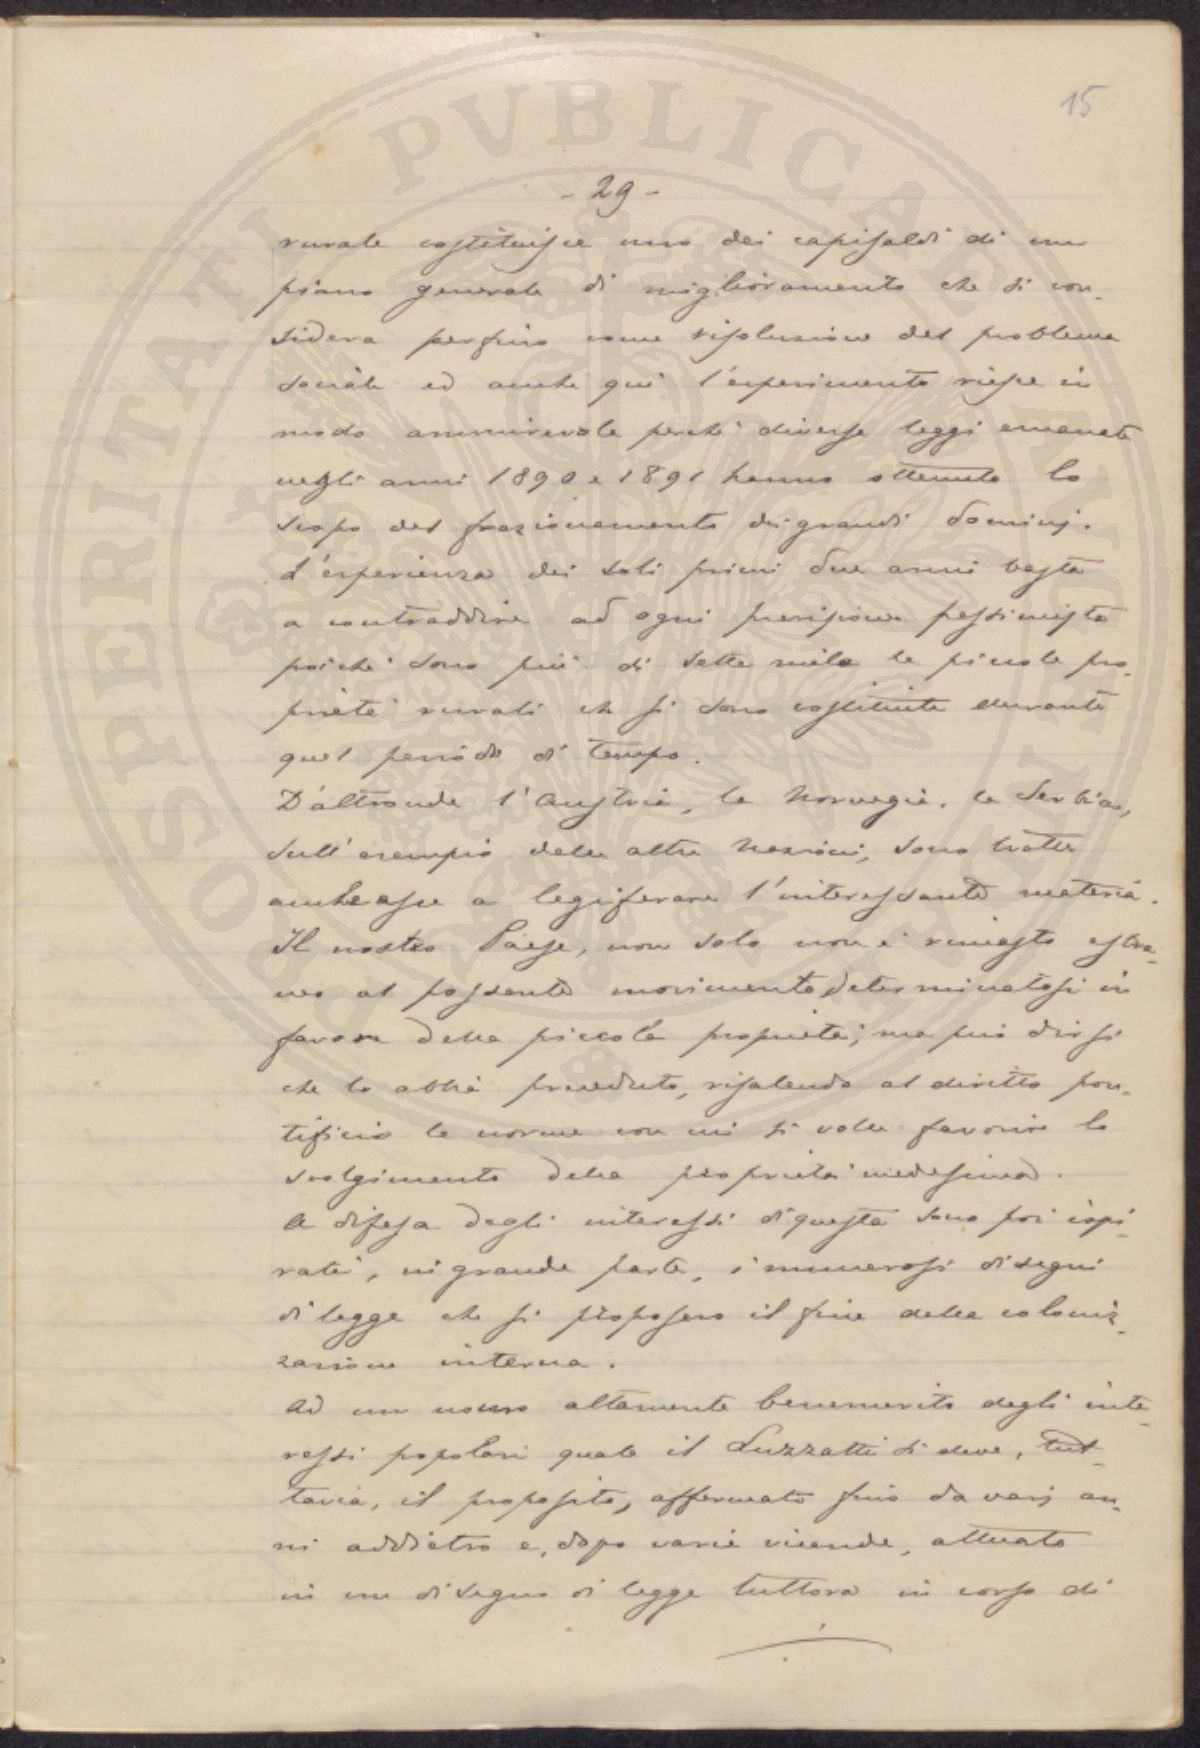 15
- 29 -
rurale costituisce uno dei capisaldi di un
piano generale di miglioramento che si con-
sidera perfino come risoluzione del problema
sociale ed anche qui l'esperimento riesce in
modo ammirevole perchè diverse leggi emanate
negli anni 1890 e 1891 hanno ottenuto lo
scopo del frazionamento dei grandi dominj.
L'esperienza dei soli primi due anni basta
a contraddire ad ogni previsione pessimista
poichè sono più di sette mila le piccole pro-
prietà rurali che si sono costituite durante
quel periodo di tempo.
D'altronde l'Austria, la Norvegia, la Serbia,
sull'esempio delle altre Nazioni, sono tratte
anch'esse a legiferare l'interessante materia.
Il nostro Paese, non solo non è rimasto estra-
neo al possente movimento determinatosi in
favore della piccola proprietà, ma può dirsi
che lo abbia preceduto, risalendo al diritto pon-
tificio le norme con cui si volle favorire lo
svolgimento della proprietà medesima.
A difesa degli interessi di questa sono poi ispi-
rati, in grande parte, i numerosi disegni
di legge che si proposero il fine della coloniz-
zazione interna.
Ad un uomo altamente benemerito degli inte-
ressi popolari quale il Luzzatti si deve, tut-
tavia, il proposito, affermato fino da varj an-
ni addietro e, dopo varie vicende, attuato
in un disegno di legge tuttora in corso di
PROSPERITATI PVBLICAE